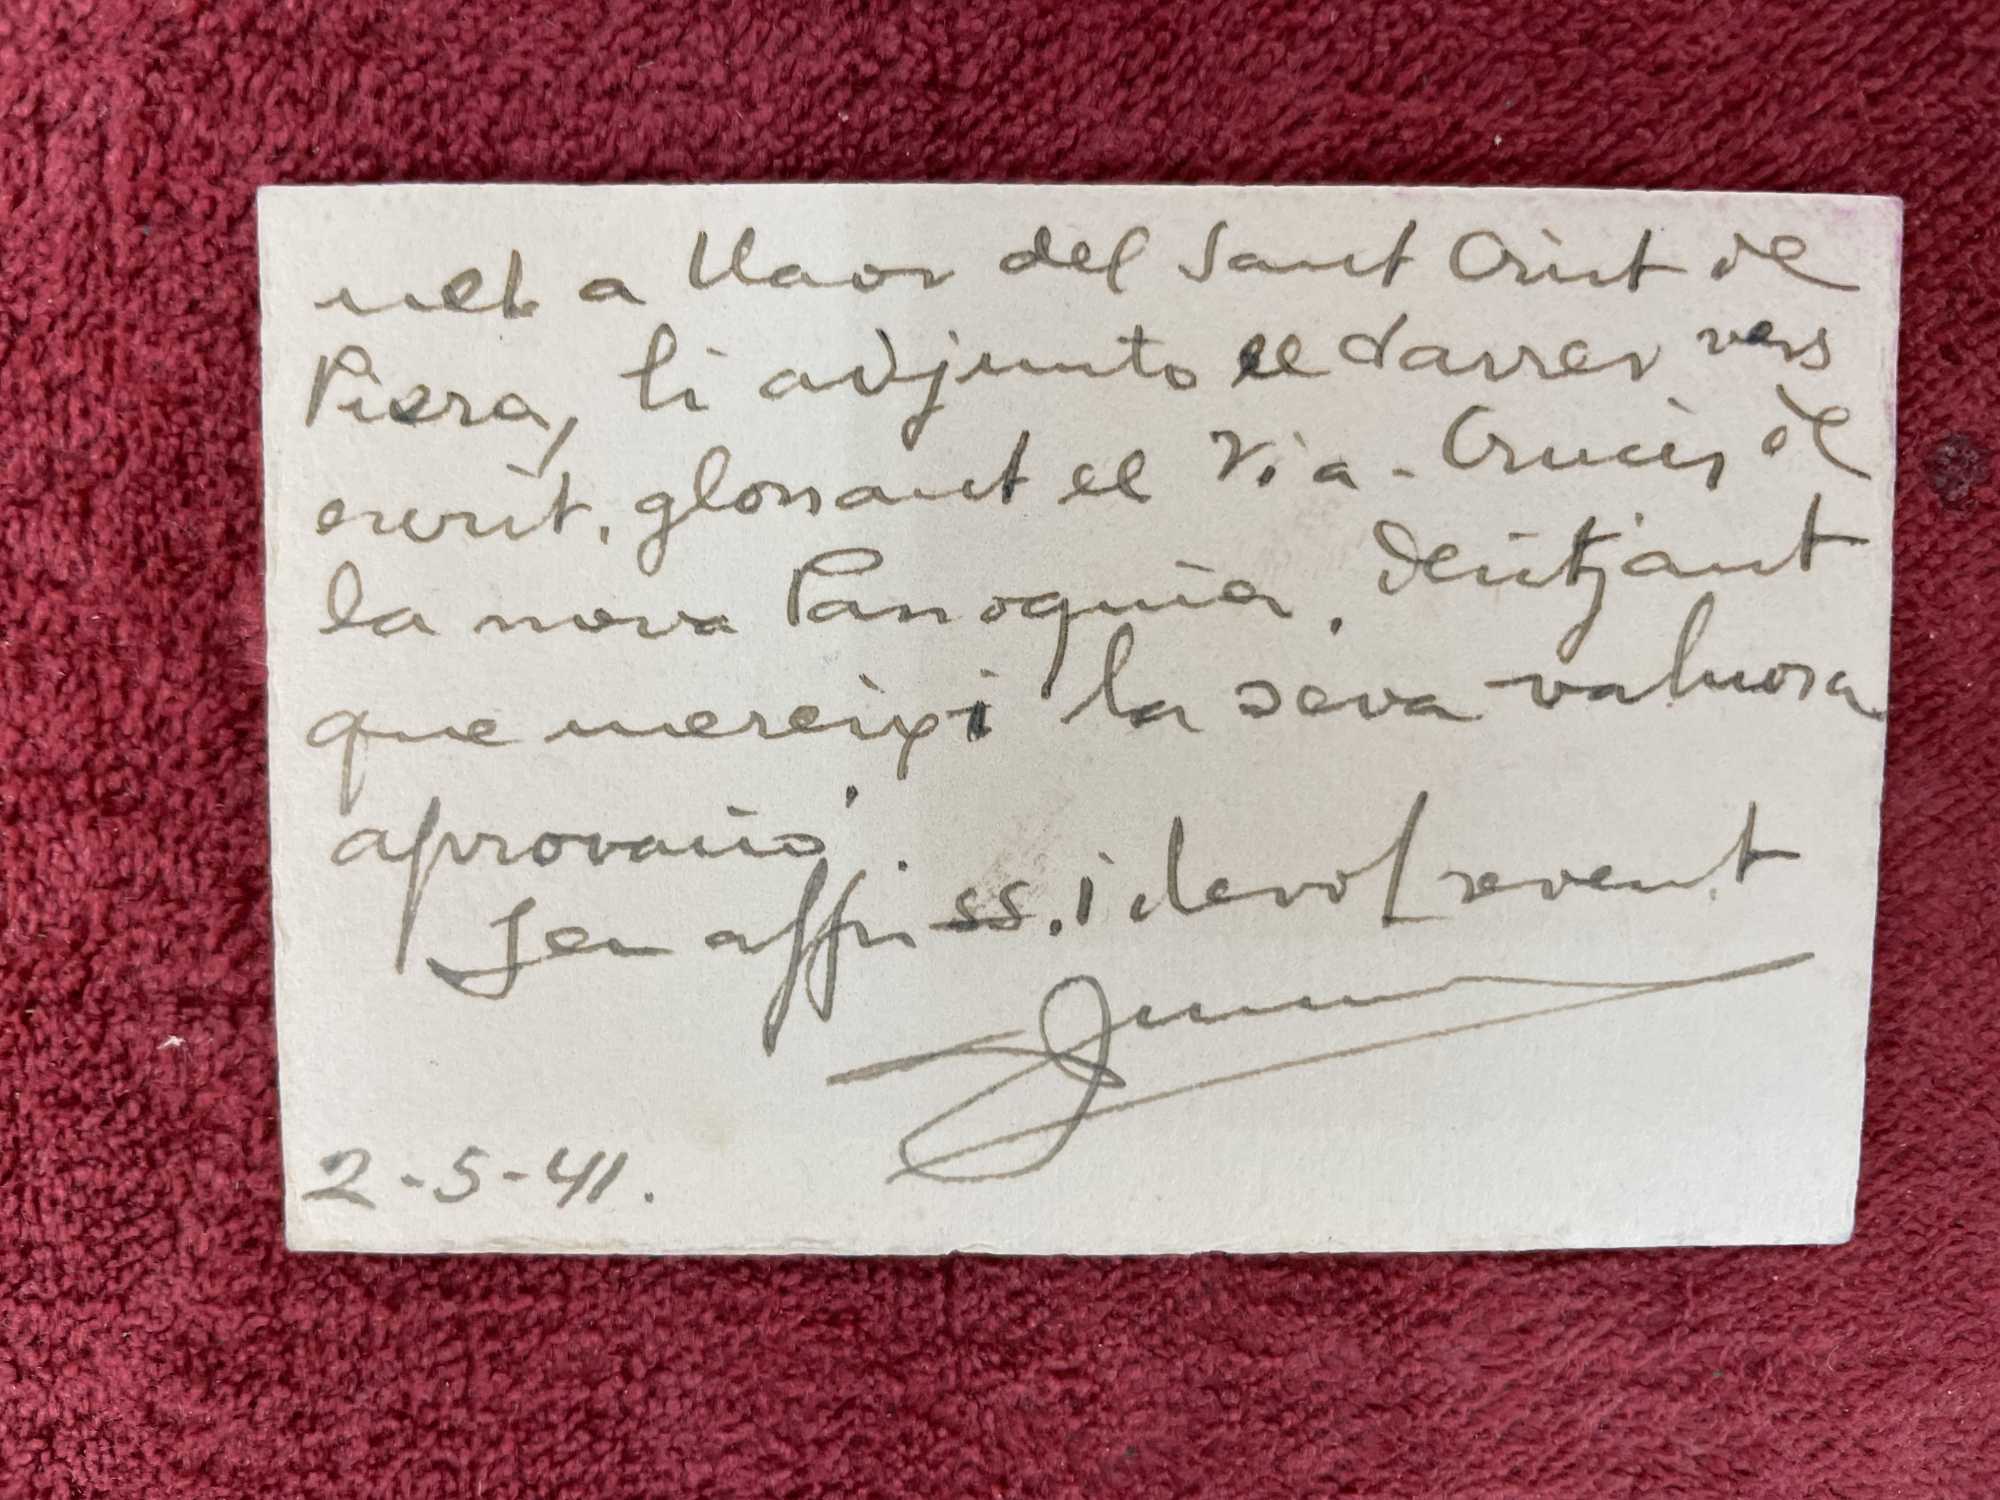 net a llaor del Sant Crist de
Piera, li adjunto el darrer vers
escrit, glossant el Via-Crucis de
la nova Parroquia. Desitjant
que mereixi la seva valuosa
aprovació.
Seu affm ss. i devot servent
2-5-41.